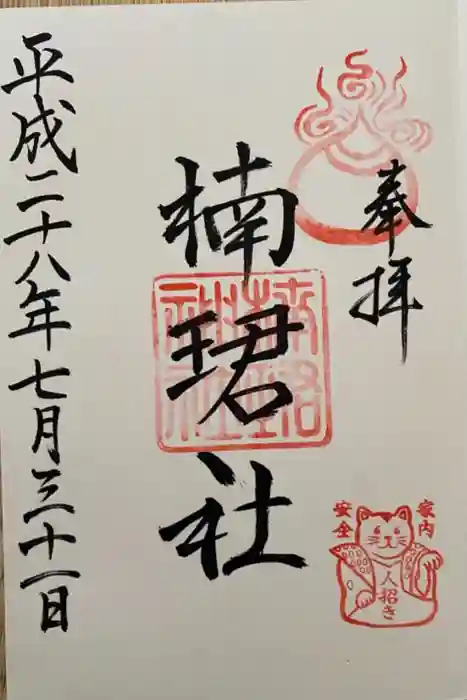 奉拝
楠珺社
平成二十八年七月三十一日
楠珺社
家内
安全
人招き